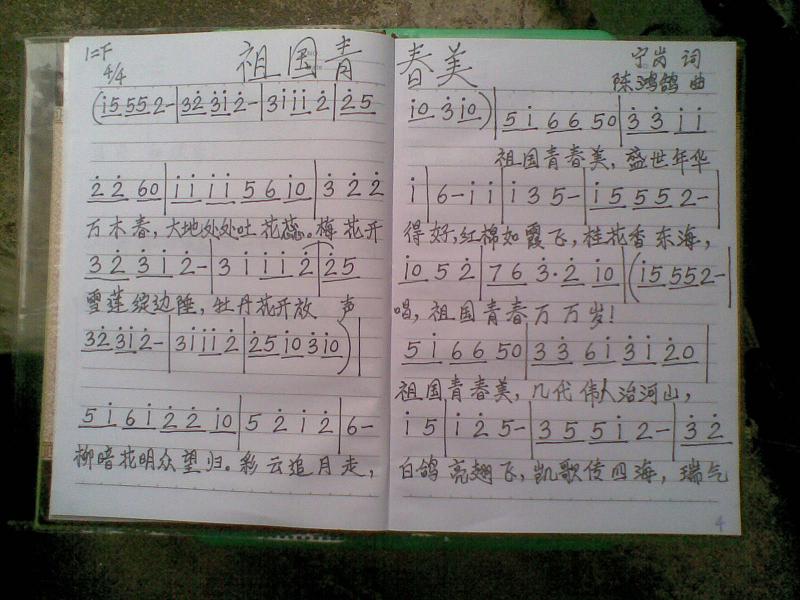 1=F
4/4
祖国青春美
宁岗 词
陈鸿鸽 曲
(i5 55 2-|32 3i 2-|3i ii 2|25 i0 3i0)|5i 66 50|33 ii
祖国青春美,盛世年华
22 60|ii ii 56 i0|3 22 i|6- ii|i35-|i5 55 2-
万木春,大地处处吐花蕊。梅花开得好,红棉如霞飞,桂花香东海,
32 3i 2-|3i ii 2|25 i0 52|76 3·2 i0|(i5 55 2-|
雪莲绽边陲,牡丹花开放声唱,祖国青春万万岁!
32 3i 2-|3i ii 2|25 i0 3i0)|5i 66 50|33 6i 3i 20|
祖国青春美,几代伟人治河山,
5i 6i 22 i0|52i2|6- i5|i25-|35 5i 2-|32
柳暗花明众望归。彩云追月走,白鸽亮翅飞,凯歌传四海,瑞气
4